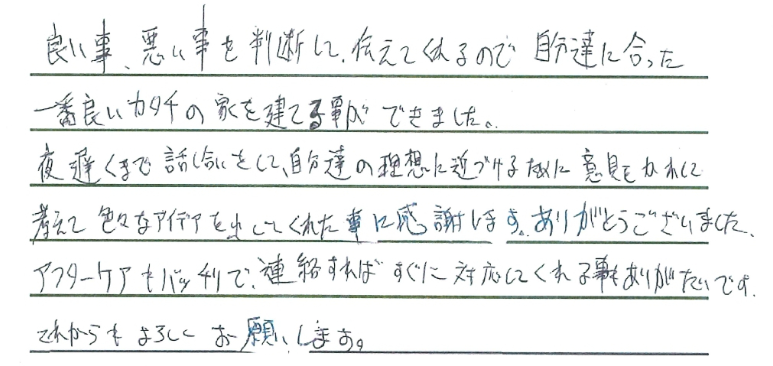 良い事、悪い事を判断して、伝えてくれるので 自分達に合った
一番良いカタチの家を建てる事ができました。
夜遅くまで話し合いをして、自分達の理想に近づけるために意見をかわして
考えて色々なアイデアを出してくれた事に感謝します。ありがとうございました。
アフターケアもバッチリで、連絡すればすぐに対応してくれる事もありがたいです。
これからもよろしくお願いします。